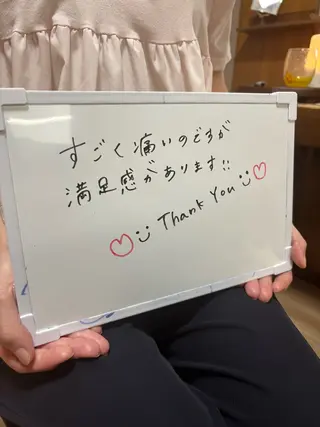 すごく痛いのですが
満足感があります!!
♡ :) Thank You :) ♡